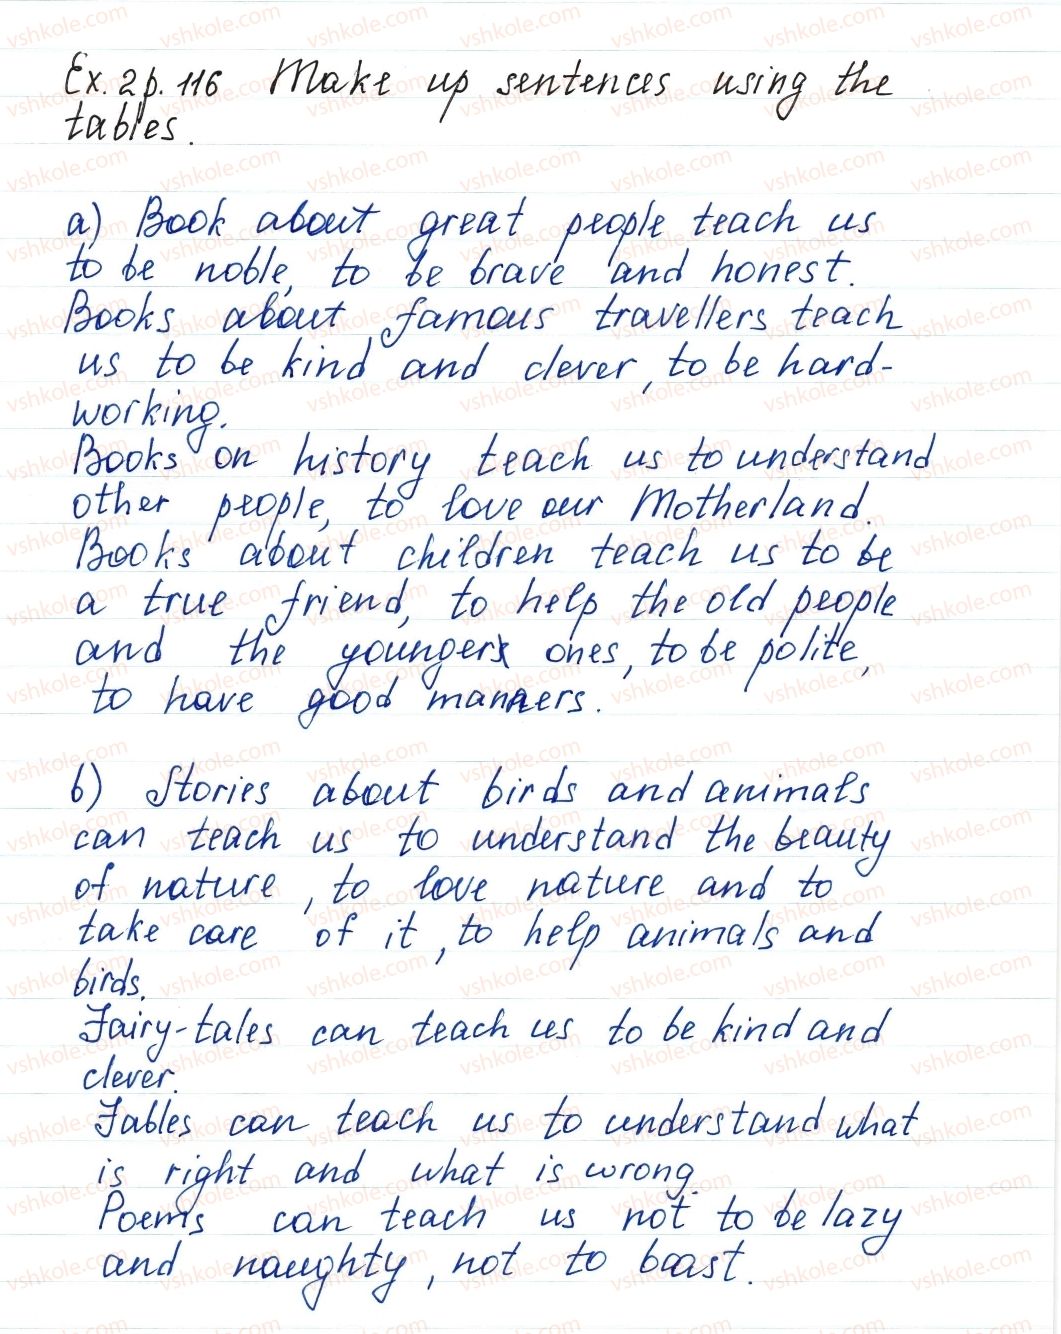 Ex. 2 p. 116 Make up sentences using the
tables.
a) Book about great people teach us
to be noble, to be brave and honest.
Books about famous travellers teach
us to be kind and clever, to be hard-
working.
Books on history teach us to understand
other people, to love our Motherland.
Books about children teach us to be
a true friend, to help the old people
and the younger ones, to be polite,
to have good manners.
b) Stories about birds and animals
can teach us to understand the beauty
of nature, to love nature and to
take care of it, to help animals and
birds.
Fairy-tales can teach us to be kind and
clever.
Fables can teach us to understand what
is right and what is wrong.
Poems can teach us not to be lazy
and naughty, not to boast.
vshkole.com